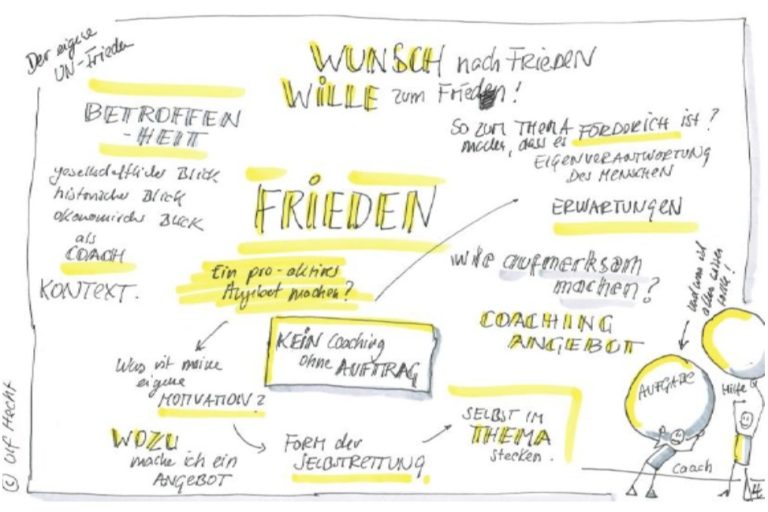 Der eigene
UN-Frieden
WUNSCH nach FRIEDEN
WILLE zum Frieden!
BETROFFEN
-HEIT
gesellschaftlicher Blick
historischer Blick
ökonomischer Blick
als
COACH
KONTEXT.
So zum THEMA
machen, dass es FÖRDERLICH ist?
EIGENVERANTWORTUNG
DES MENSCHEN
ERWARTUNGEN
FRIEDEN
Ein pro-aktives
Angebot machen?
Wie aufmerksam
machen?
COACHING
ANGEBOT
KEIN Coaching
ohne AUFTRAG
Was ist meine
eigene
MOTIVATION?
WOZU
mache ich ein
ANGEBOT
FORM der
SELBSTRETTUNG
SELBST IM
THEMA
stecken.
und was ich
alles
sollte!
AUFGABE
Hilfe
Coach
© Ulf Hecht